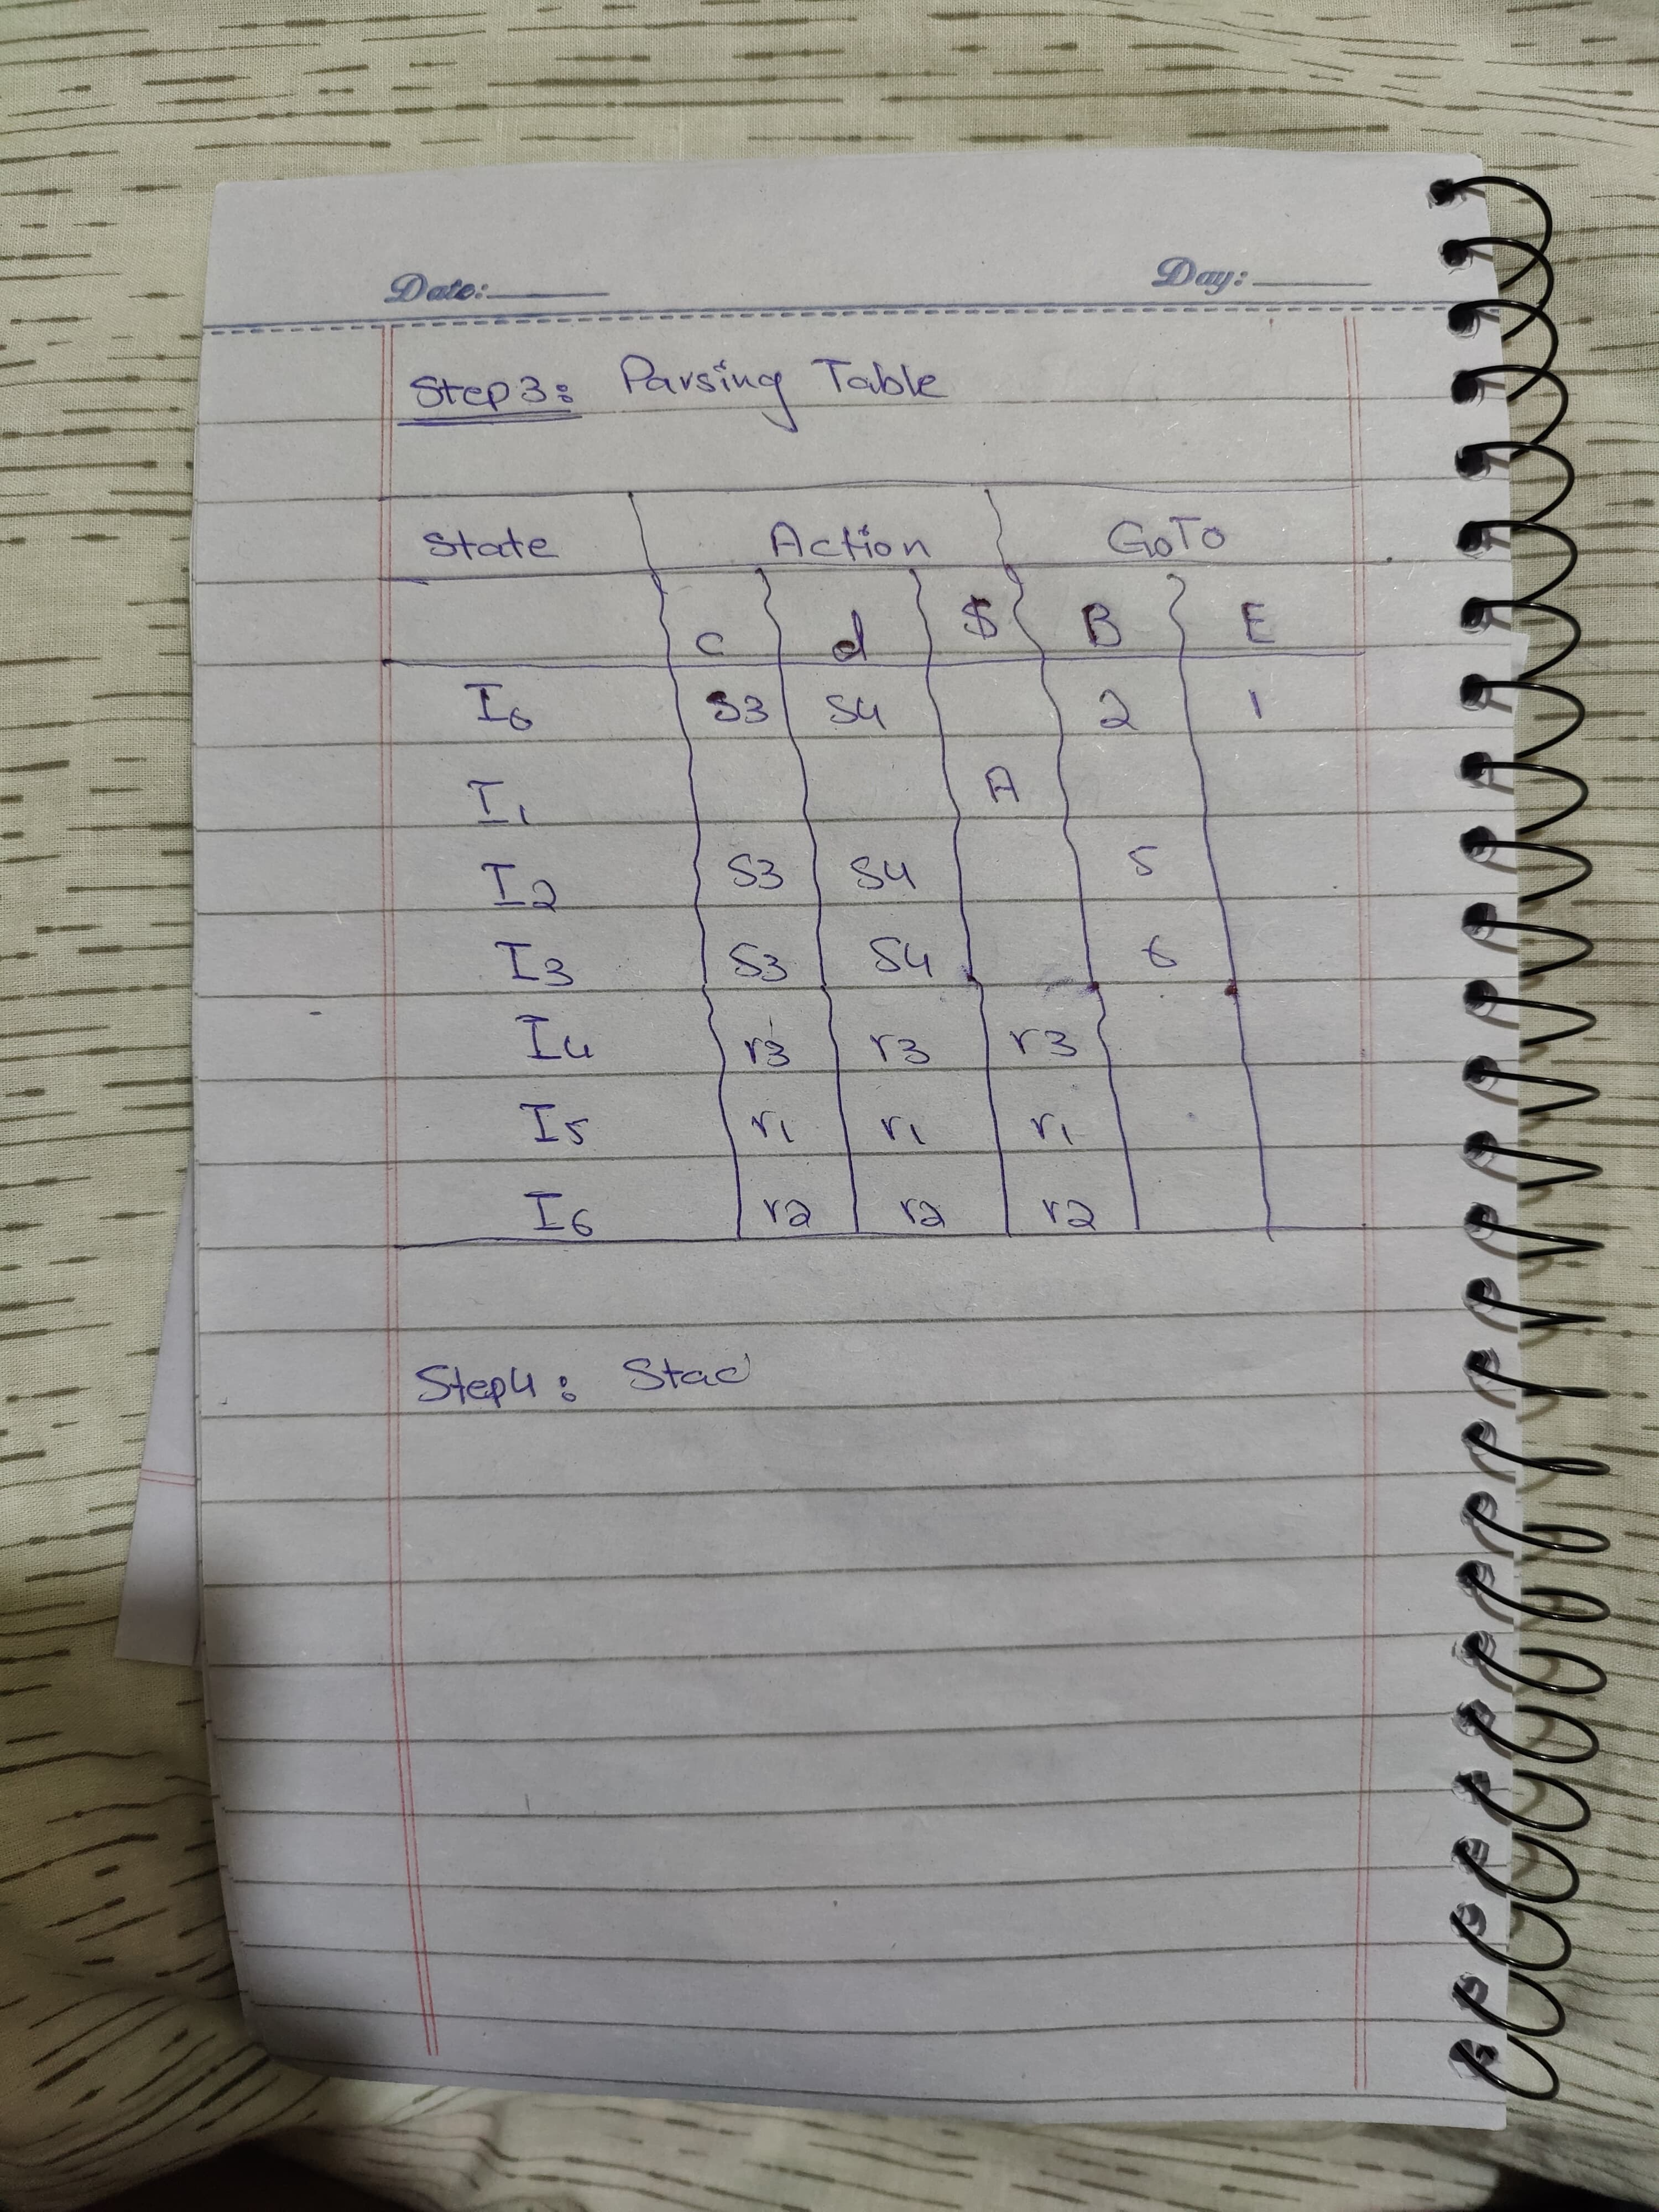 Date: Day:
Step3: Parsing Table
State Action GoTo
c d $ B E
I0 S3 S4 2 1
I1 A
I2 S3 S4 5
I3 S3 S4 6
I4 r3 r3 r3
I5 r1 r1 r1
I6 r2 r2 r2
Step4: Stac